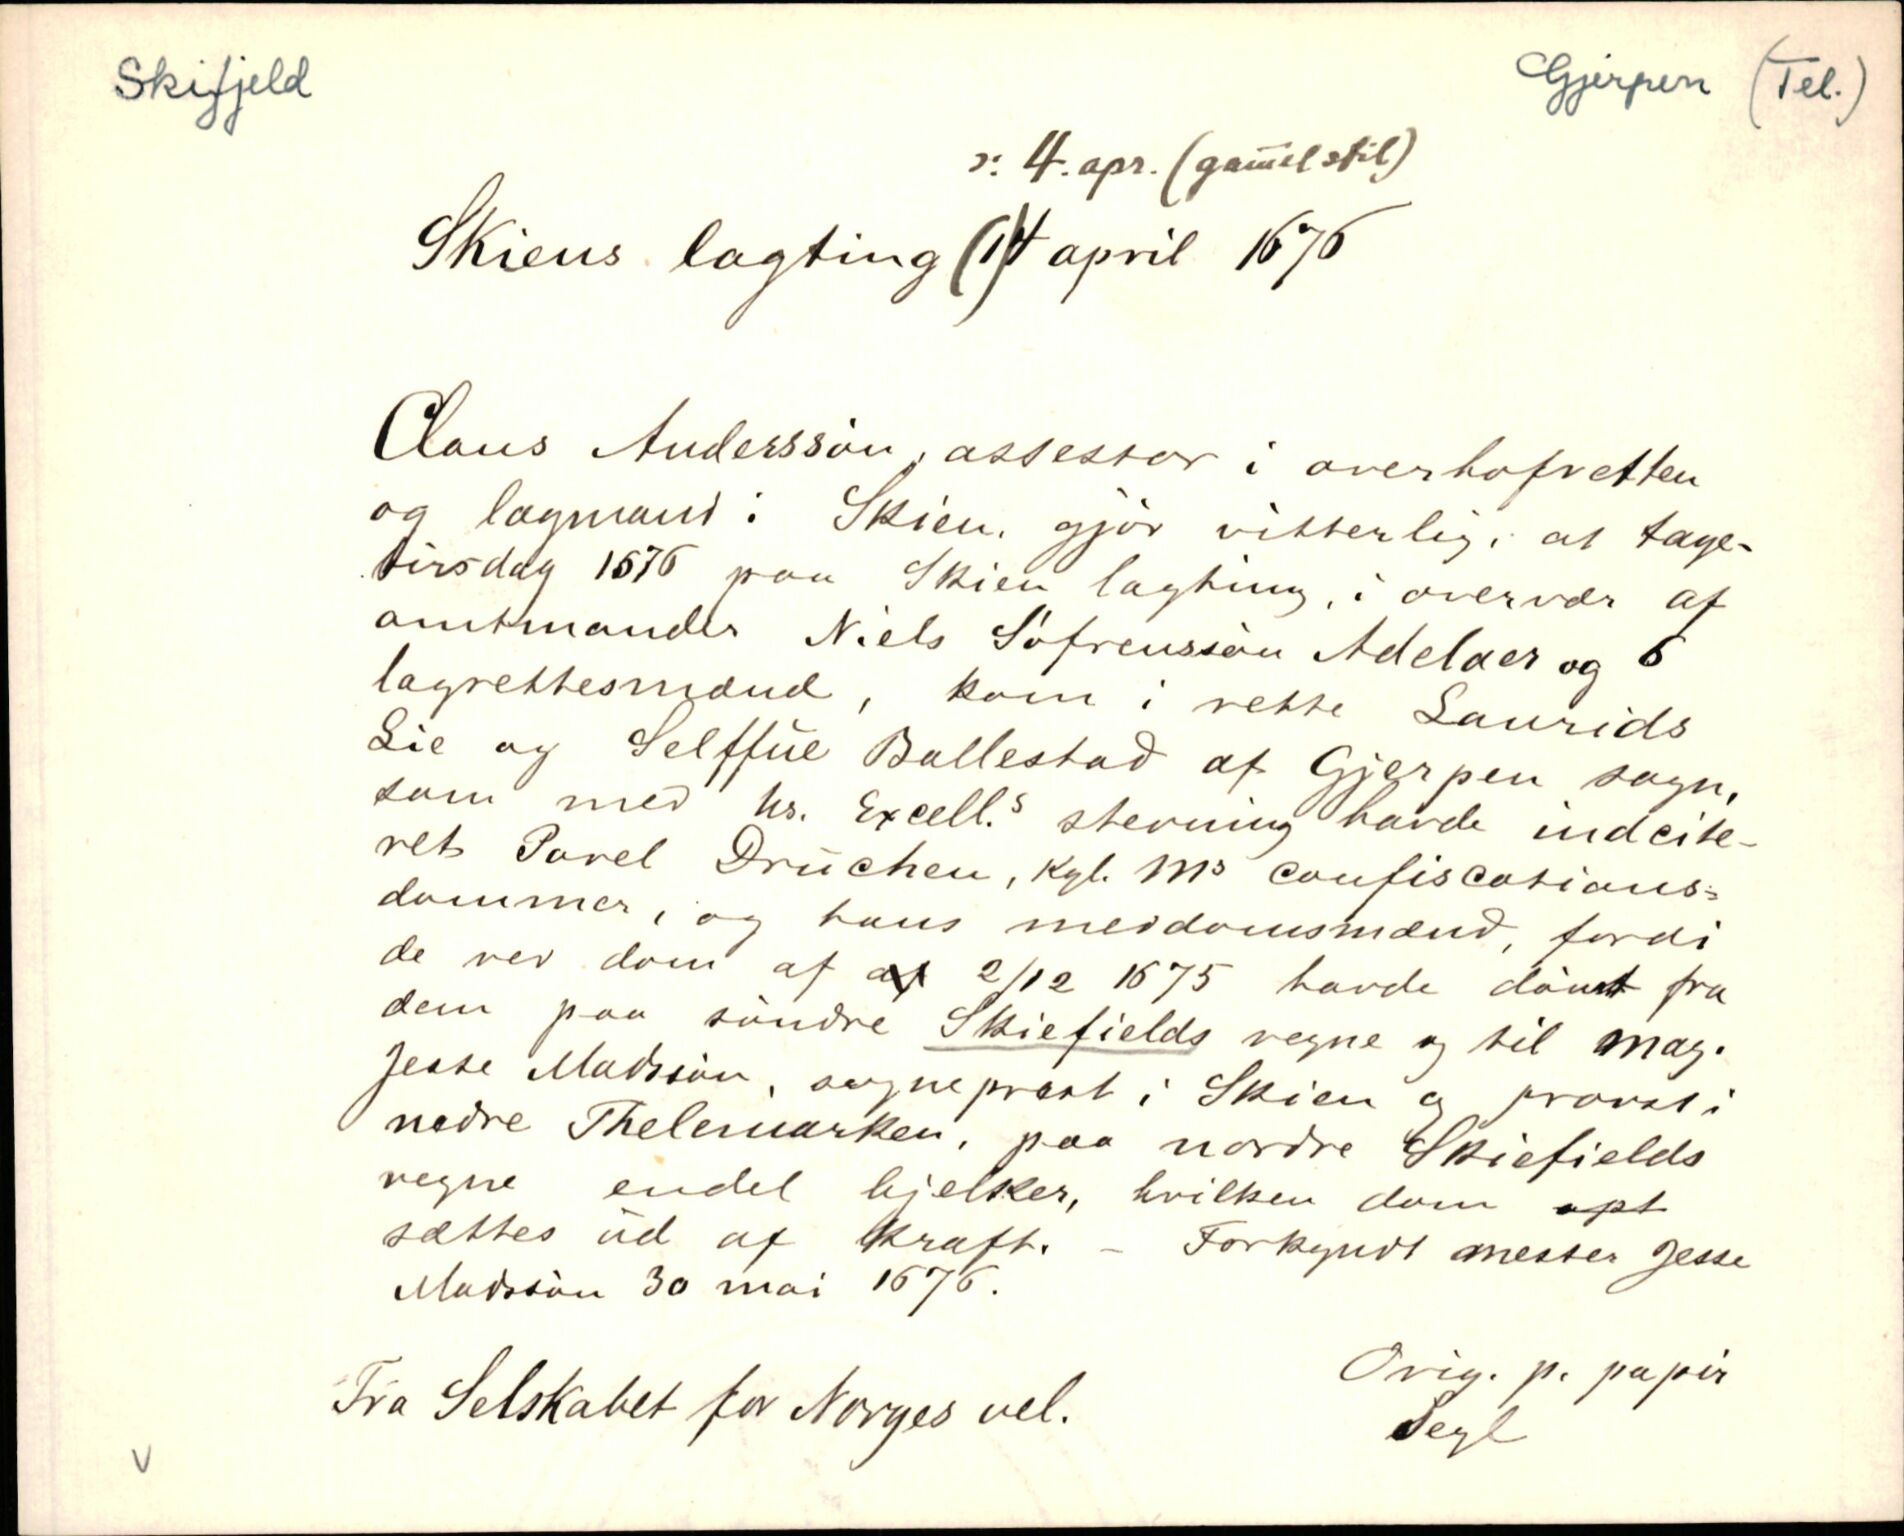 Skifjeld
Gjerpen (Tel.)
ɔ: 4. apr. (gam̄el stil)
Skiens lagting (1)4 april 1676
Claus Anderssön, assessor i overhofretten
og lagmand i Skien, gjör vitterlig, at tage-
tirsdag 1676 paa Skien lagting, i overvær af
amtmander Niels Söfrenssön Adelaer og 6
lagrettesmænd, kom i rette Laurids
Lie og Selffue Ballestad af Gjerpen sogn,
som med hs. Excell.s stevning havde indcite-
ret Povel Drüchen, kgl. Ms confiscations=
dommer, og hans meddomsmænd, fordi
de ved dom af af 2/12 1675 havde dömt fra
dem paa söndre Skiefields vegne og til Mag.
Jesse Madssön, sogneprest i Skien og provst i
nedre Thelemarken, paa nordre Skiefields
vegne endel bjelker, hvilken dom opt
sættes ud af kraft. – Forkyndt mester Jesse
Madssön 30 mai 1676.
Orig. p. papir
Segl
Fra Selskabet for Norges vel.
V